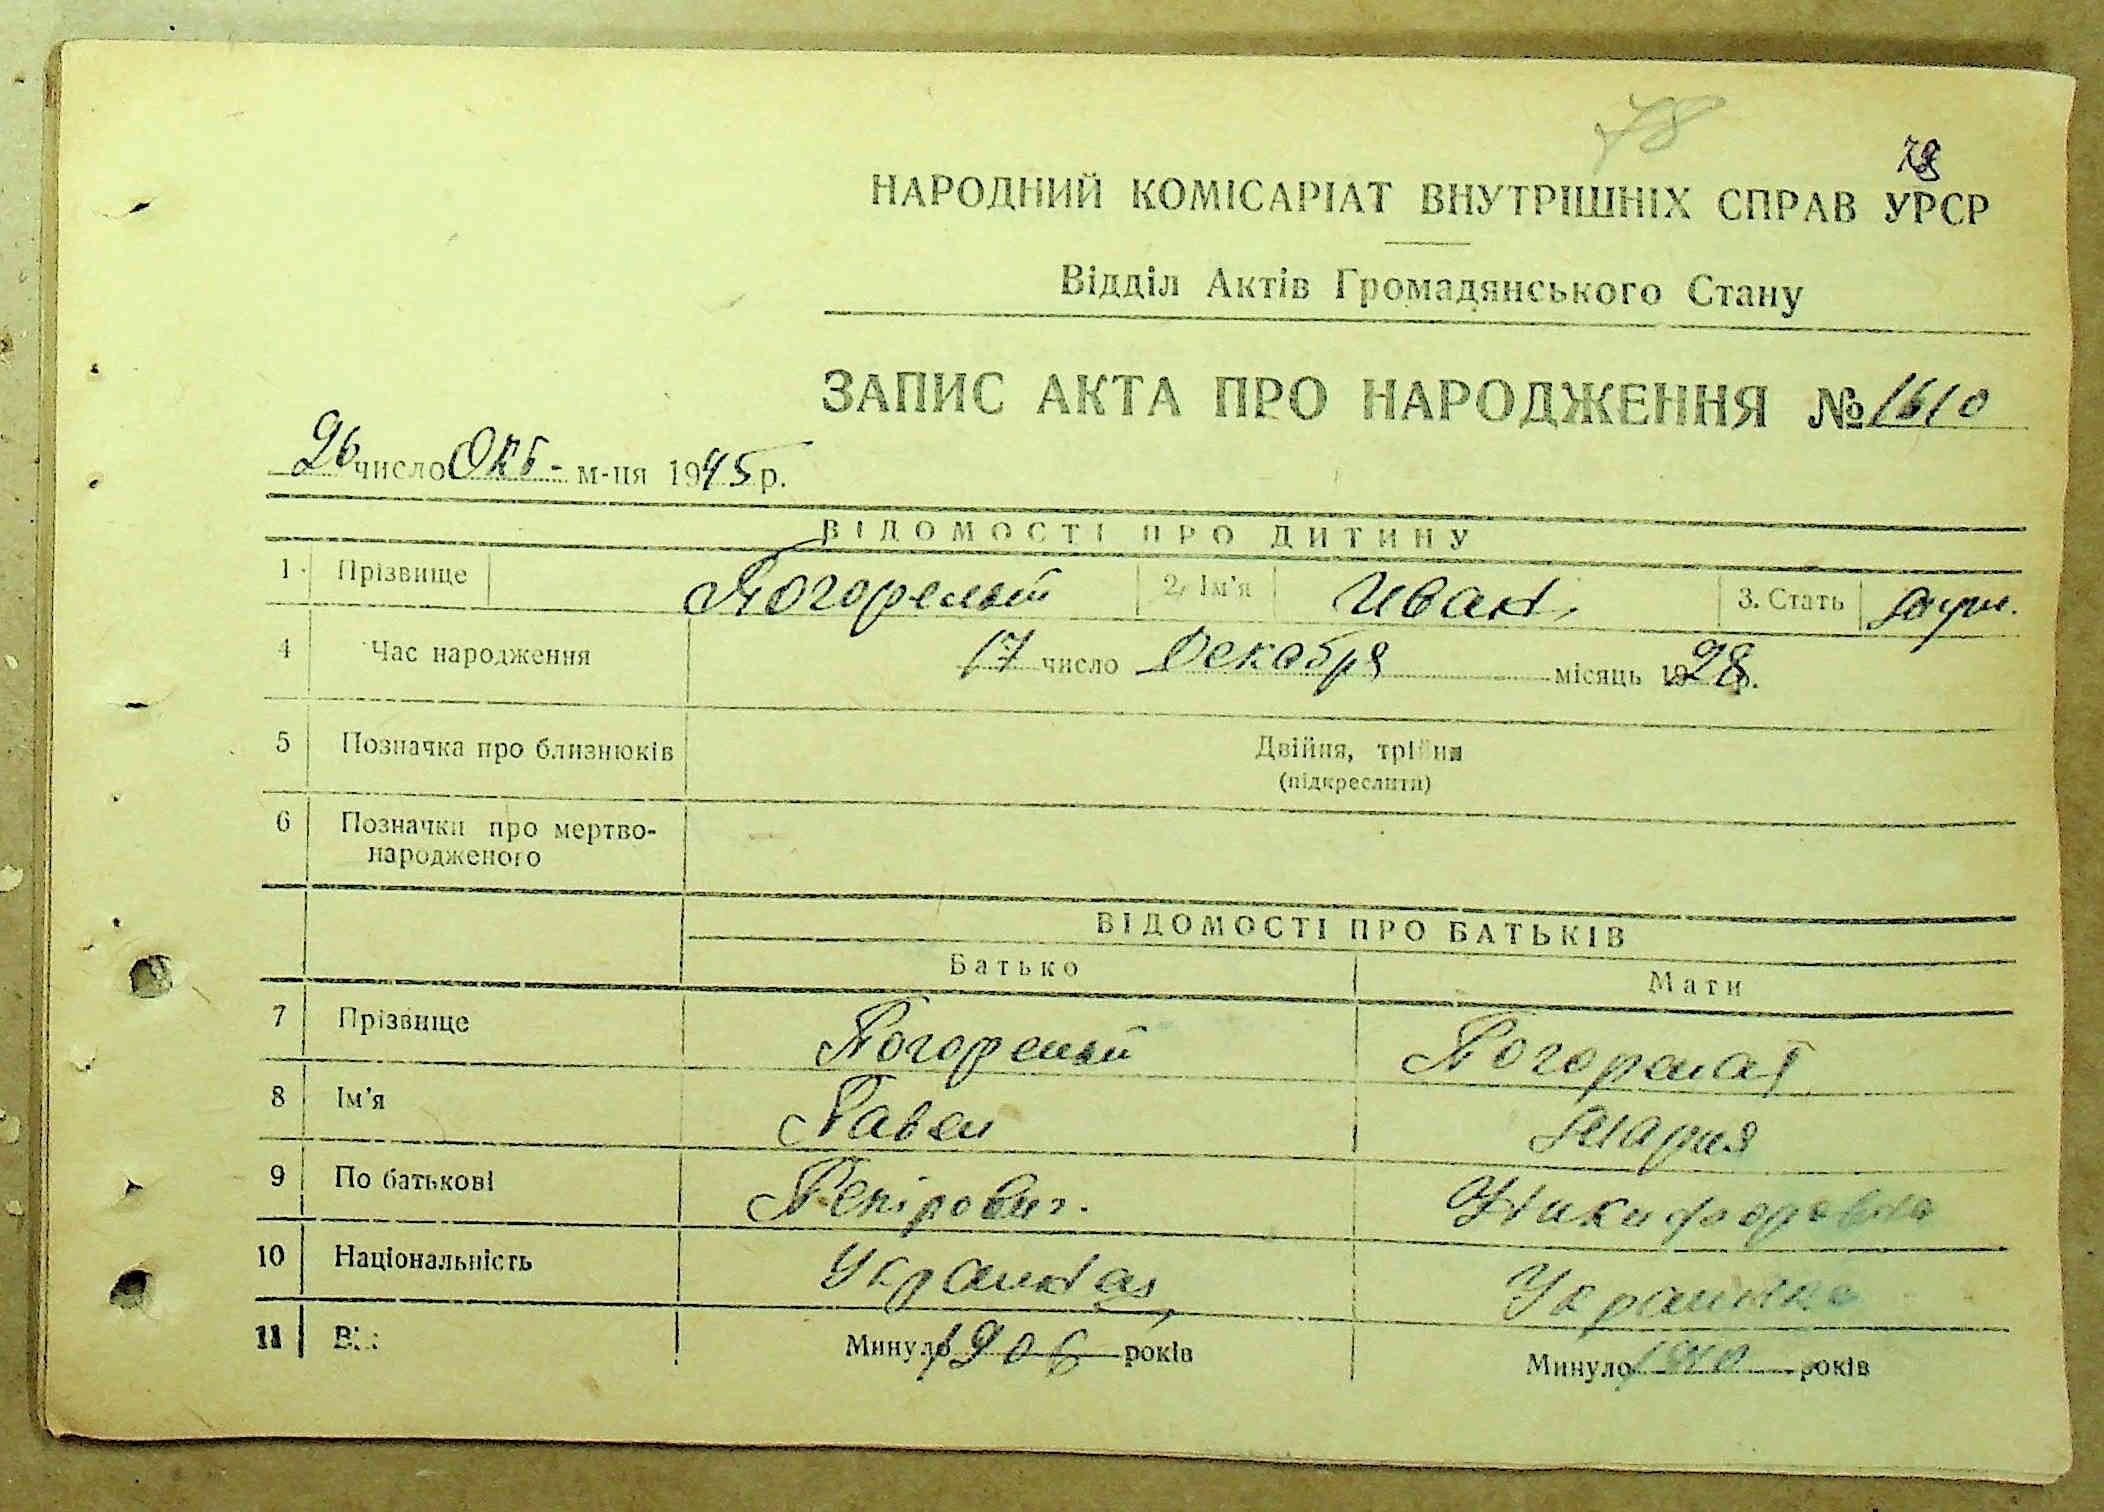 78
78
НАРОДНИЙ КОМІСАРІАТ ВНУТРІШНІХ СПРАВ УРСР
Відділ Актів Громадянського Стану
ЗАПИС АКТА ПРО НАРОДЖЕННЯ № 1610
26 число Окт- м-ця 1945 р.
ВІДОМОСТІ ПРО ДИТИНУ
1 Прізвище Погорелый 2. Ім'я Иван 3. Стать муж.
4 Час народження 17 число Декабря місяць 1928 р.
5 Позначка про близнюків Двійня, трійня
(підкреслити)
6 Позначки про мертво-
народженого
ВІДОМОСТІ ПРО БАТЬКІВ
Батько Мати
7 Прізвище Погорелый Погорелая
8 Ім'я Павел Мария
9 По батькові Никифоровна
10 Національність Украинец Украинка
11 Вік Минуло 1906 років Минуло років